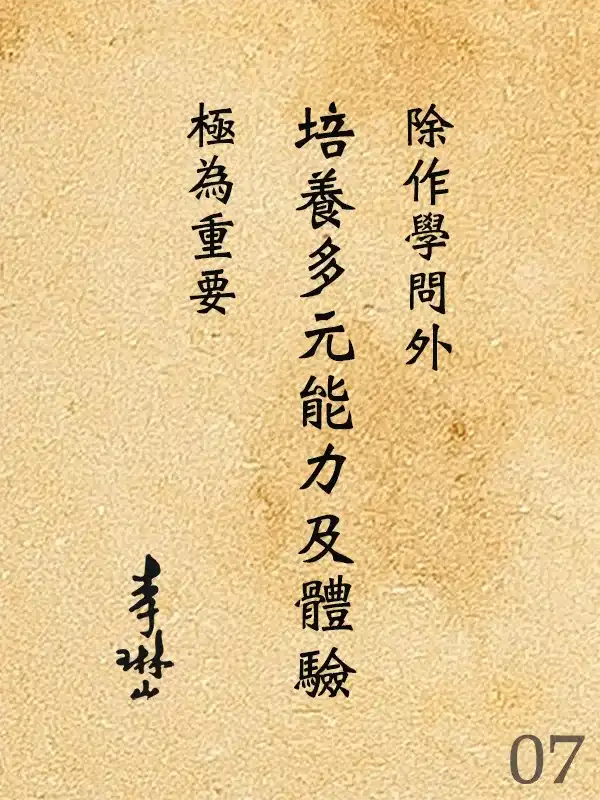 除作學問外
培養多元能力及體驗
極為重要
李琳山
07